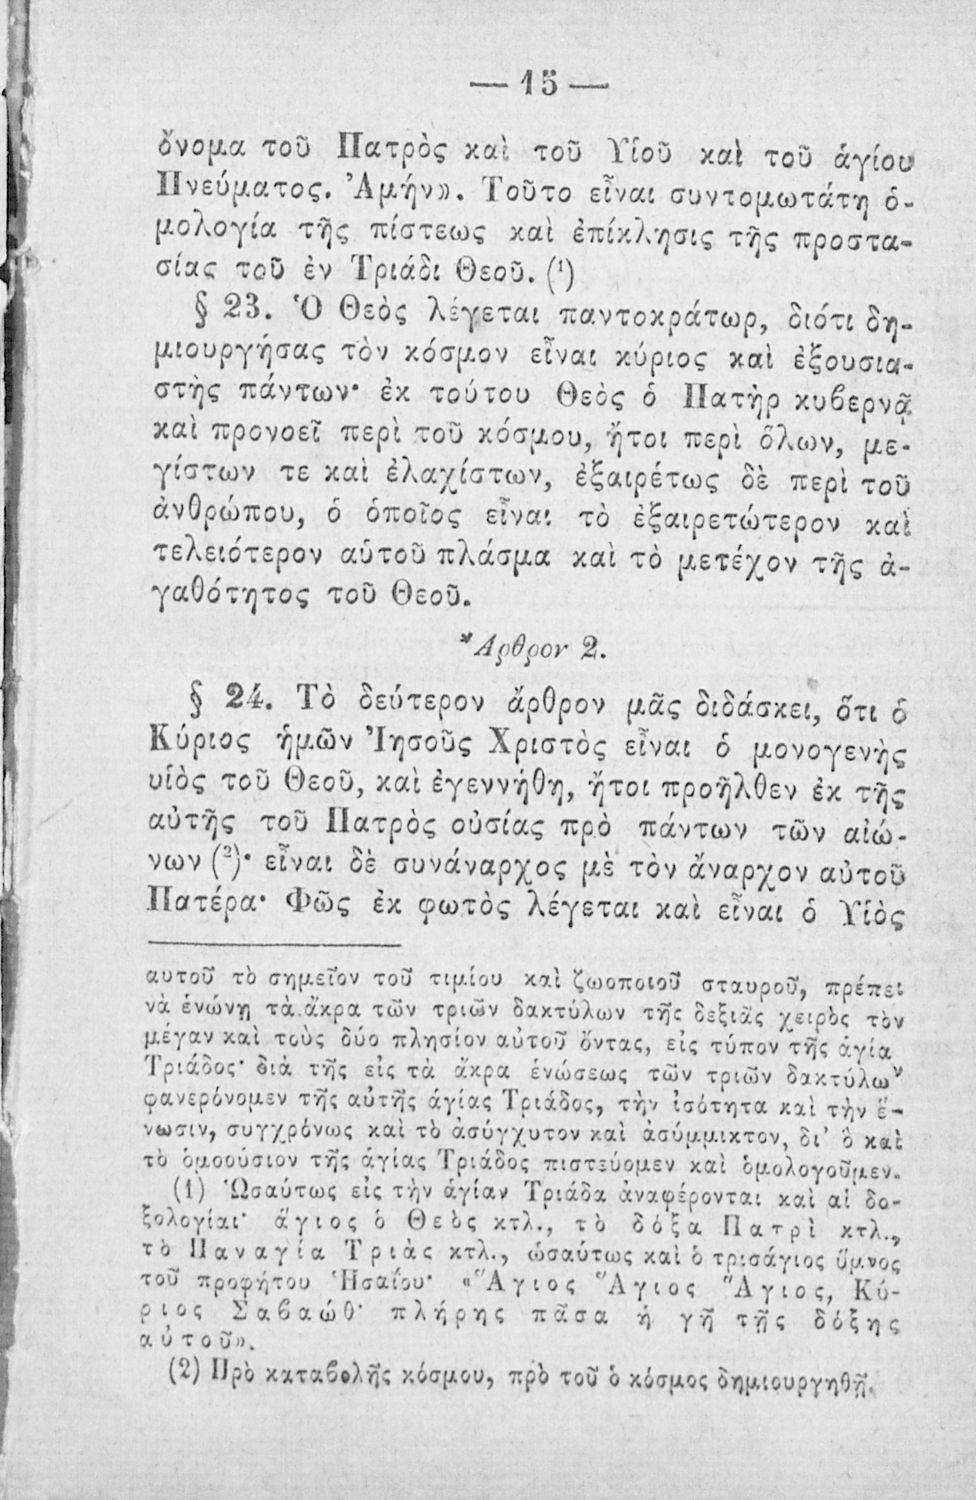 — 15 —
ὄνομα τοῦ Πατρὸς καὶ τοῦ Υἱοῦ καὶ τοῦ ἁγίου
Πνεύματος. Ἀμήν». Τοῦτο εἶναι συντομωτάτη ὁ-
μολογία τῆς πίστεως καὶ ἐπίκλησις τῆς προστα-
σίας τοῦ ἐν Τριάδι Θεοῦ. (¹)
§ 23. Ὁ Θεὸς λέγεται παντοκράτωρ, διότι δη-
μιουργήσας τὸν κόσμον εἶναι κύριος καὶ ἐξουσια-
στὴς πάντων· ἐκ τούτου Θεὸς ὁ Πατὴρ κυβερνᾷ
καὶ προνοεῖ περὶ τοῦ κόσμου, ἤτοι περὶ ὅλων, με-
γίστων τε καὶ ἐλαχίστων, ἐξαιρέτως δὲ περὶ τοῦ
ἀνθρώπου, ὁ ὁποῖος εἶναι τὸ ἐξαιρετώτερον καὶ
τελειότερον αὐτοῦ πλάσμα καὶ τὸ μετέχον τῆς ἀ-
γαθότητος τοῦ Θεοῦ.
Ἄρθρον 2.
§ 24. Τὸ δεύτερον ἄρθρον μᾶς διδάσκει, ὅτι ὁ
Κύριος ἡμῶν Ἰησοῦς Χριστὸς εἶναι ὁ μονογενὴς
υἱὸς τοῦ Θεοῦ, καὶ ἐγεννήθη, ἤτοι προῆλθεν ἐκ τῆς
αὐτῆς τοῦ Πατρὸς οὐσίας πρὸ πάντων τῶν αἰώ-
νων (²)· εἶναι δὲ συνάναρχος μὲ τὸν ἄναρχον αὐτοῦ
Πατέρα· Φῶς ἐκ φωτὸς λέγεται καὶ εἶναι ὁ Υἱὸς
αυτοῦ τὸ σημεῖον τοῦ τιμίου καὶ ζωοποιοῦ σταυροῦ, πρέπει
νὰ ἑνώνῃ τὰ ἄκρα τῶν τριῶν δακτύλων τῆς δεξιᾶς χειρὸς τὸν
μέγαν καὶ τοὺς δύο πλησίον αὐτοῦ ὄντας, εἰς τύπον τῆς ἁγία
Τριάδος· διὰ τῆς εἰς τὰ ἄκρα ἑνώσεως τῶν τριῶν δακτύλων
φανερόνομεν τῆς αὐτῆς ἁγίας Τριάδος, τὴν ἰσότητα καὶ τὴν ἕ-
νωσιν, συγχρόνως καὶ τὸ ἀσύγχυτον καὶ ἀσύμμικτον, δι' ὃ καὶ
τὸ ὁμοούσιον τῆς ἁγίας Τριάδος πιστεύομεν καὶ ὁμολογοῦμεν.
(1) Ὡσαύτως εἰς τὴν ἁγίαν Τριάδα ἀναφέρονται καὶ αἱ δο-
ξολογίαι· ἅγιος ὁ Θεὸς κτλ., τὸ δόξα Πατρὶ κτλ.,
τὸ Παναγία Τριὰς κτλ., ὡσαύτως καὶ ὁ τρισάγιος ὕμνος
τοῦ προφήτου Ἡσαΐου· «Ἅγιος Ἅγιος Ἅγιος, Κύ-
ριος Σαβαώθ· πλήρης πᾶσα ἡ γῆ τῆς δόξης
αὐτοῦ».
(2) Πρὸ καταβολῆς κόσμου, πρὸ τοῦ ὁ κόσμος δημιουργηθῇ.